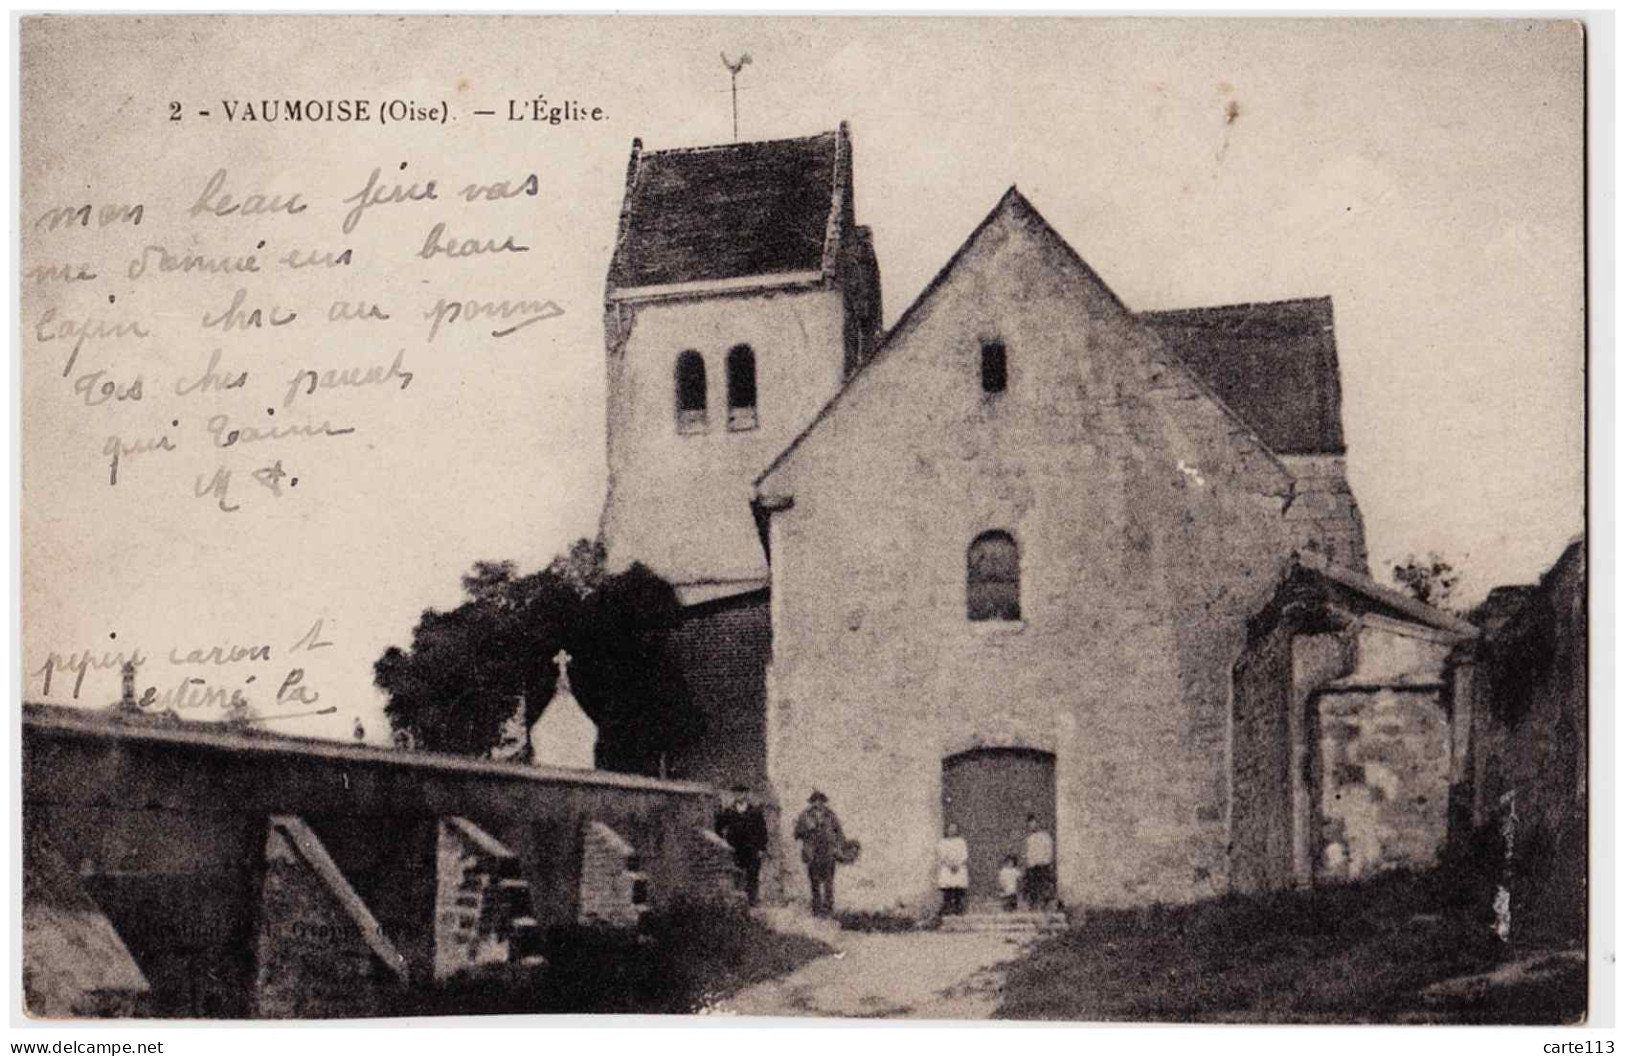 2 - VAUMOISE (Oise). — L'Église.
mon beau fère vas
me donné eus beau
lapin chic au
tes ches parents
qui t'aime
M
pepère caron
enterré la
Delcampe.net
carte113